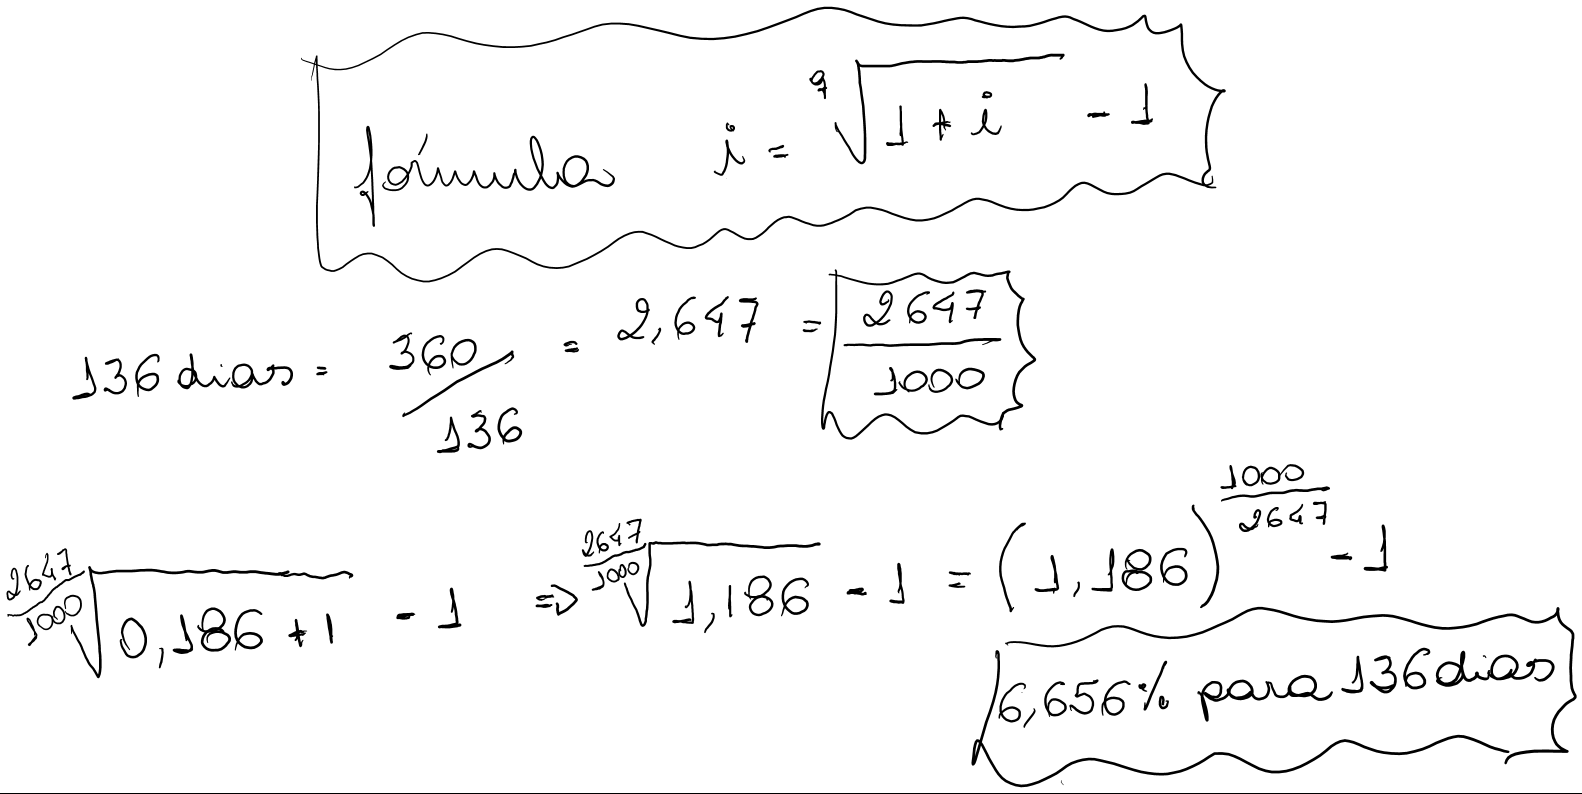 fórmula i = ⁹√(1 + i) - 1
136 dias = 360/136 = 2,647 = 2647/1000
^(2647/1000)√(0,186 + 1) - 1 => ^(2647/1000)√(1,186) - 1 = (1,186)^(1000/2647) - 1
6,656% para 136 dias